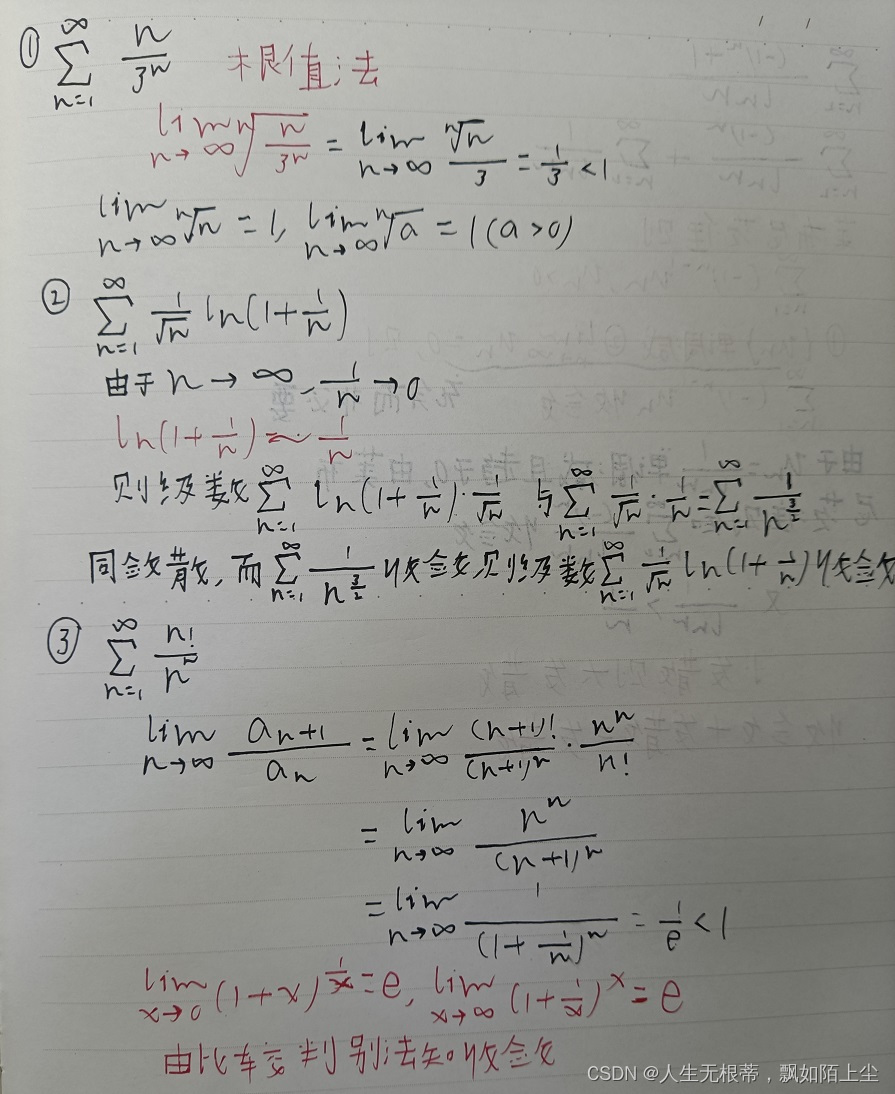 ① ∑_{n=1}^{∞} n/3ⁿ 根值法
lim_{n→∞} ⁿ√(n/3ⁿ) = lim_{n→∞} ⁿ√n/3 = 1/3 < 1
lim_{n→∞} ⁿ√n = 1, lim_{n→∞} ⁿ√a = 1 (a>0)
② ∑_{n=1}^{∞} 1/√n ln(1+1/n)
由于 n→∞, 1/n→0
ln(1+1/n) ~ 1/n
则级数 ∑_{n=1}^{∞} ln(1+1/n)·1/√n 与 ∑_{n=1}^{∞} 1/√n·1/n = ∑_{n=1}^{∞} 1/n^{3/2}
同敛散, 而 ∑_{n=1}^{∞} 1/n^{3/2} 收敛, 则级数 ∑_{n=1}^{∞} 1/√n ln(1+1/n) 收敛
③ ∑_{n=1}^{∞} n!/nⁿ
lim_{n→∞} a_{n+1}/a_n = lim_{n→∞} (n+1)!/(n+1)ⁿ · nⁿ/n!
= lim_{n→∞} nⁿ/(n+1)ⁿ
= lim_{n→∞} 1/(1+1/n)ⁿ = 1/e < 1
lim_{x→0} (1+x)^{1/x} = e, lim_{x→∞} (1+1/x)^x = e
由比较判别法知收敛
CSDN @人生无根蒂，飘如陌上尘